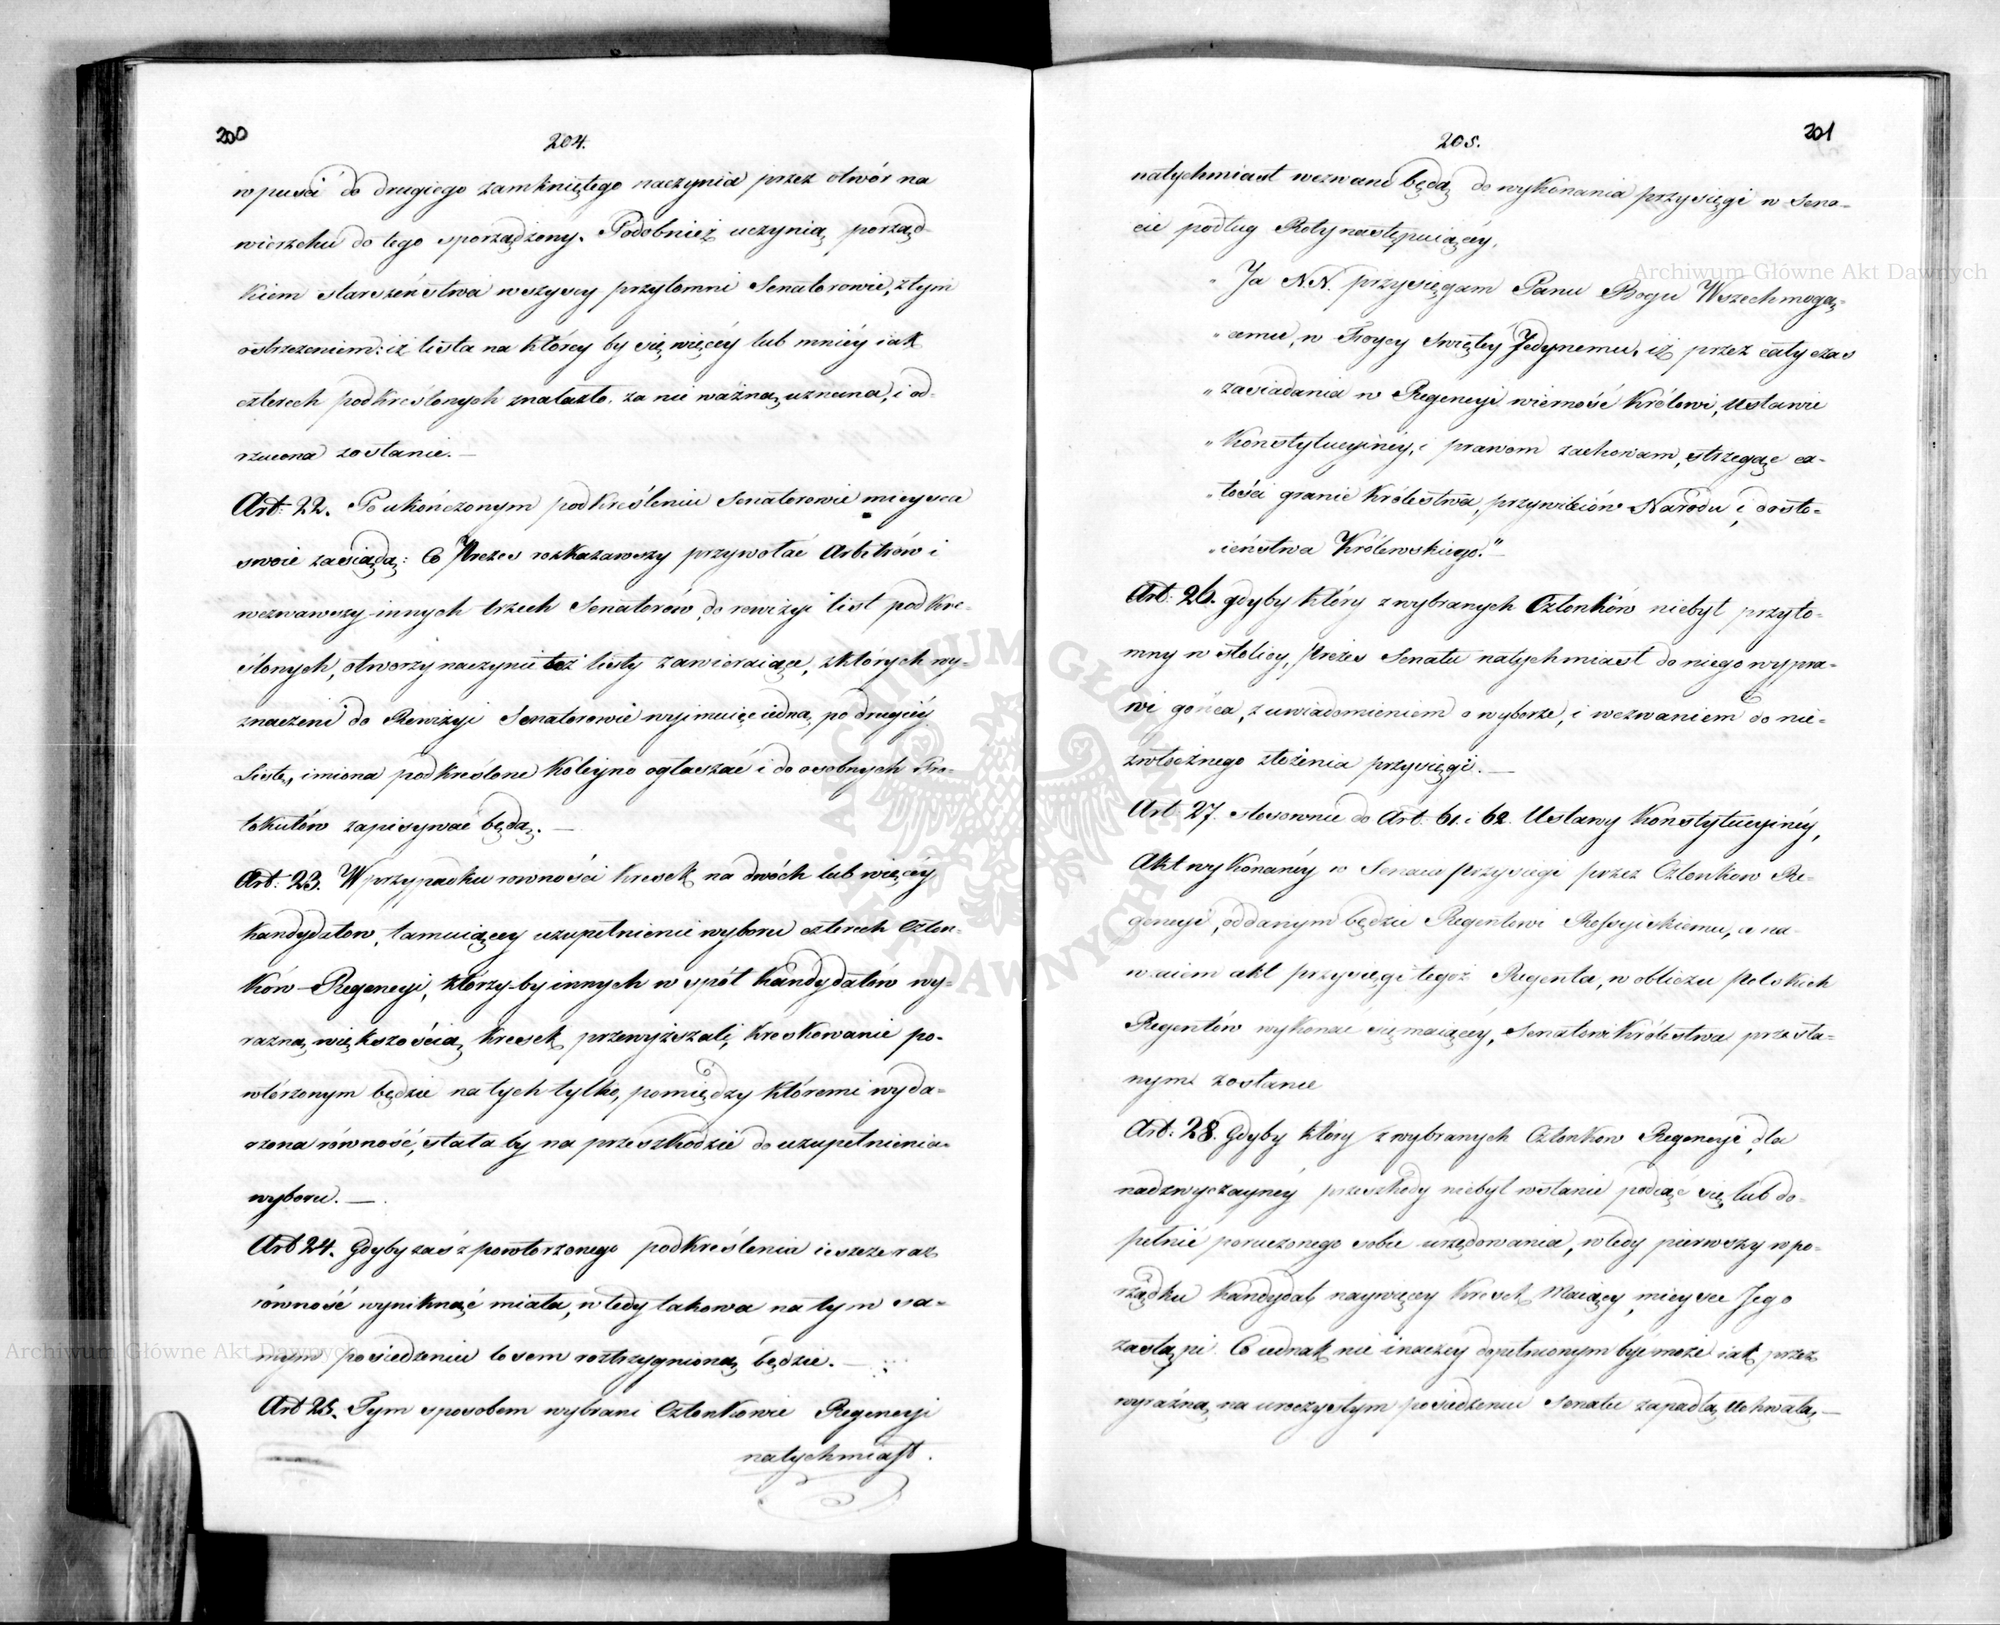 200
204.
wpuści do drugiego zamkniętego naczynia przez otwór na
wierzchu do tego sporządzony. Podobnież uczynią porząd-
kiem starszeństwa wszyscy przytomni Senatorowie, z tym
ostrzeżeniem: iż lista na którey by się więcéy lub mniéy iak
czterech podkreślonych znalazło, za nie ważną uznana, i od-
rzucona zostanie. —
Art: 22. Po ukończonym podkreśleniu Senatorowie mieysca
swoie zasiądą: a Prezes rozkazawszy przywołać Arbitrów i
wezwawszy innych trzech Senatorów, do rewizyi list podkre-
ślonych, otworzy naczynie też listy zawieraiące, z których wy-
znaczeni do Rewizyi Senatorowie wyimuiąc iedną, po drugiéy
Listę, imiona podkreślone koleyno ogłaszać i do osobnych Pro-
tokułów zapisywać będą. —
Art: 23. W przypadku równości kresek na dwóch lub więcéy
kandydatów, tamuiącéy uzupełnienie wyboru czterech Człon-
ków Regencyi, którzy by innych w spół kandydatów wy-
raźną większością kresek przewyższali, kreskowanie po-
wtórzonym będzie na tych tylko, pomiędzy któremi wyda-
rzona równość, stała by na przeszkodzie do uzupełnienia
wyboru. —
Art 24. Gdyby zaś z powtorzonego podkreślenia ieszcze raz
równość wyniknąć miała, wtedy takowa na tym sa-
mym posiedzeniu losem roztrzygnioną będzie. —
Art 25. Tym sposobem wybrani Członkowie Regencyi
natychmiast.
205.
201
natychmiast wezwani będą do wykonania przysięgi w Sena-
cie podług Roty następuiącéy.
„ Ja N.N. przysięgam Panu Bogu Wszechmogą-
„ cemu, w Troycy Swiętéy Jedynemu, iż przez cały czas
„ zasiadania w Regencyi wierność Królowi, Ustawie
„ Konstytucyinéy, i prawom zachowam, strzegąc ca-
„ łości granic Królestwa, przywileiów Narodu i dosto-
„ ieństwa Królewskiego." —
Art: 26. gdyby który z wybranych Członków niebył przyto-
mny w stolicy, Prezes Senatu natychmiast do niego wypra-
wi gońca, z uwiadomieniem o wyborze, i wezwaniem do nie-
zwłocznego złożenia przysięgi. —
Art: 27. stosownie do Art. 61. i 62. Ustawy Konstytucyinéy,
Akt wykonanéy w Senacie przysięgi przez Członkow Re-
gencyi, oddanym będzie Regentowi Rossyiskiemu, a na-
wzaiem akt przysięgi tegoż Regenta, w obliczu Polskich
Regentów wykonać się maiącéy, Senatowi Królestwa przesła-
nym zostanie
Art: 28. Gdyby który z wybranych Członkow Regencyi, dla
nadzwyczaynéy przeszkody niebył wstanie podiąć się lub do-
pełnić poruczonego sobie urzędowania, wtedy pierwszy wpo-
rządku kandydat naywięcey kresek Maiący, mieysce Jego
zastąpi. Co iednak nie inaczéy dopełnionym być może iak przez
wyraźną na uroczystym posiedzeniu Senatu zapadłą Uchwałą. —
Archiwum Główne Akt Dawnych
Archiwum Główne Akt Dawnych
ARCHIWUM GŁÓWNE AKT DAWNYCH